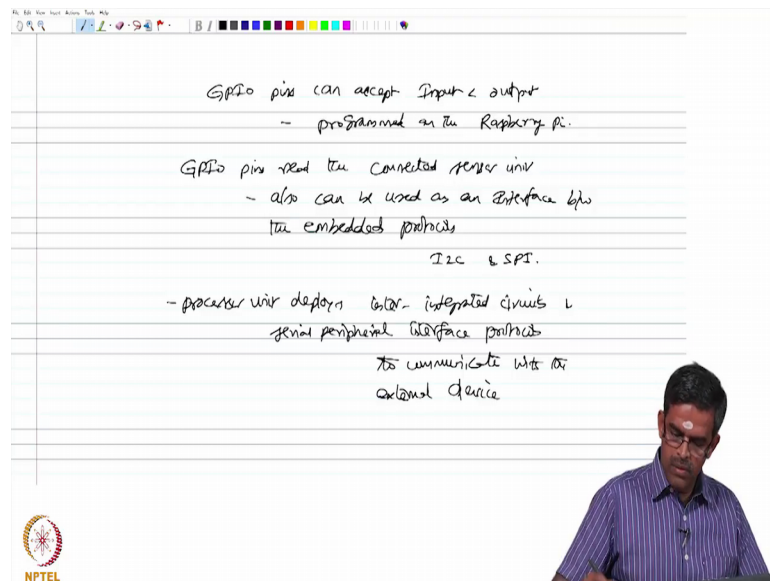 File Edit View Insert Actions Tools Help
B I
GPIO pins can accept Input & output
- programmed on the Raspberry Pi.
GPIO pins read the connected sensor unit
- also can be used as an Interface b/w
the embedded protocols
I2C & SPI.
- processer unit deploys inter- integrated circuits &
serial peripheral interface protocols
to communicate with the
external device
NPTEL